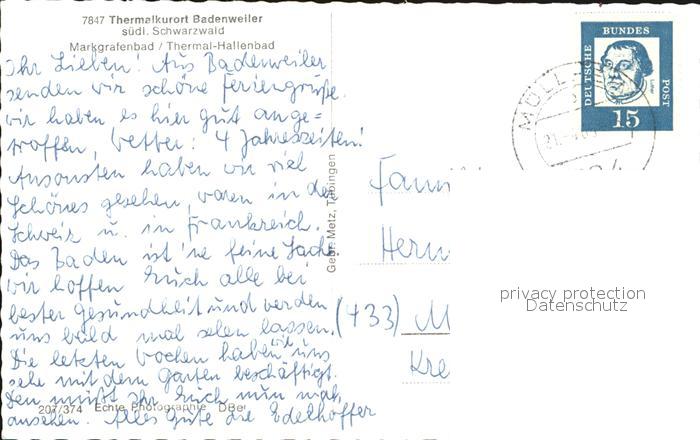 7847 Thermalkurort Badenweiler
südl. Schwarzwald
Markgrafenbad / Thermal-Hallenbad
Ihr Lieben! Aus Badenweiler
senden wir schöne Feriengrüße.
Wir haben es hier gut ange=
troffen, Wetter: 4 Jahreszeiten!
Ansonsten haben wir viel
Schönes gesehen, waren in der
Schweiz u. in Frankreich.
Das Baden ist 'ne feine Sache.
Wir hoffen Euch alle bei
bester Gesundheit und werden
uns bald mal sehen lassen.
Die letzten Wochen haben wir uns
sehr mit dem Garten beschäftigt.
Den müßt Ihr Euch nun mal
ansehen. Alles Gute die Edelhöffer
207/374 Echte Photographie DBer
Gebr. Metz, Tübingen
DEUTSCHE BUNDES POST
15
MÜLL
Fam
Herm
(433) M
Kre
privacy protection
Datenschutz